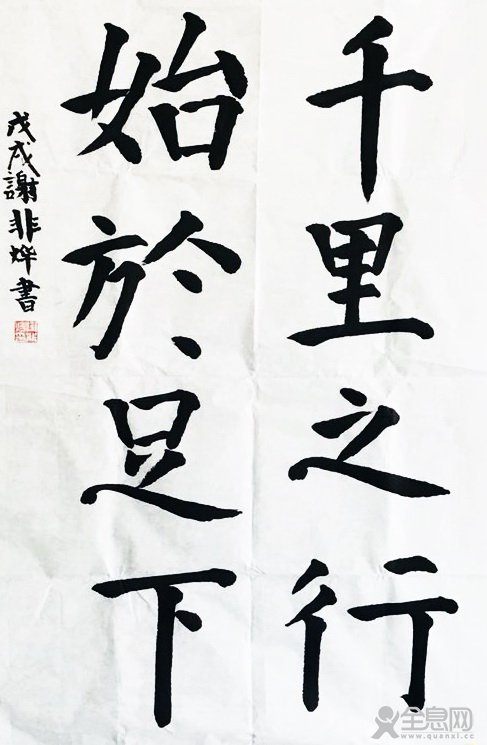 千里之行
始於足下
戊戌謝非烨書
全息网
www.quanxi.cc